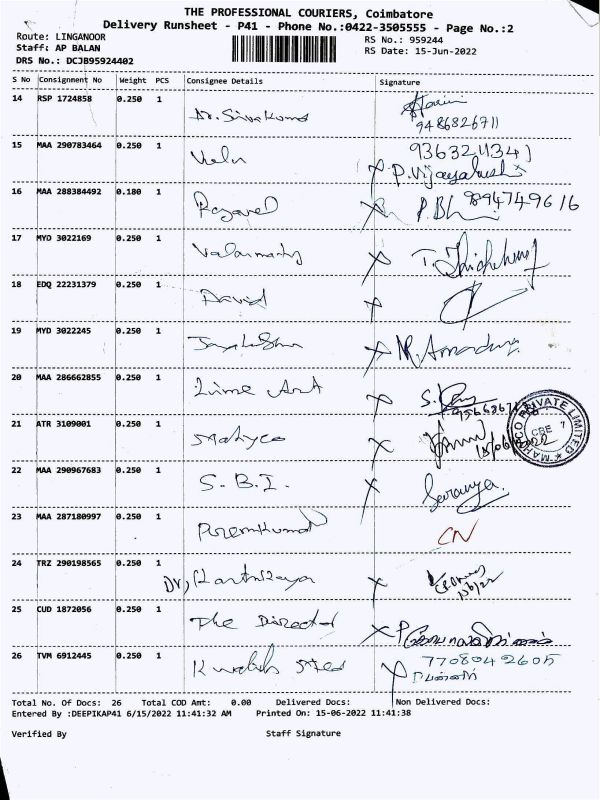 THE PROFESSIONAL COURIERS, Coimbatore
Delivery Runsheet - P41 - Phone No.:0422-3505555 - Page No.:2
Route: LINGANOOR
RS No.: 959244
Staff: AP BALAN
RS Date: 15-Jun-2022
DRS No.: DCJB95924402
S No Consignment No Weight PCS Consignee Details Signature
14 RSP 1724858 0.250 1 Dr. Sivakumar
9486826711
15 MAA 290783464 0.250 1 Velu
P. Vijayalakshi
16 MAA 288384492 0.180 1 8947749616
17 MYD 3022169 0.250 1 Valarmathy
18 EDQ 22231379 0.250 1 David
19 MYD 3022245 0.250 1
20 MAA 286662855 0.250 1 Lime Art
21 ATR 3109001 0.250 1 Mahyco
15/06/2022
PRIVATE LIMITED
CBE 7
22 MAA 290967683 0.250 1 S.B.I. Saranya
23 MAA 287180997 0.250 1 Premkumar CN
24 TRZ 290198565 0.250 1 Dr, Karthikeya
25 CUD 1872056 0.250 1 The Director
26 TVM 6912445 0.250 1 7708042605
Total No. Of Docs: 26 Total COD Amt: 0.00 Delivered Docs: Non Delivered Docs:
Entered By :DEEPIKAP41 6/15/2022 11:41:32 AM Printed On: 15-06-2022 11:41:38
Verified By Staff Signature